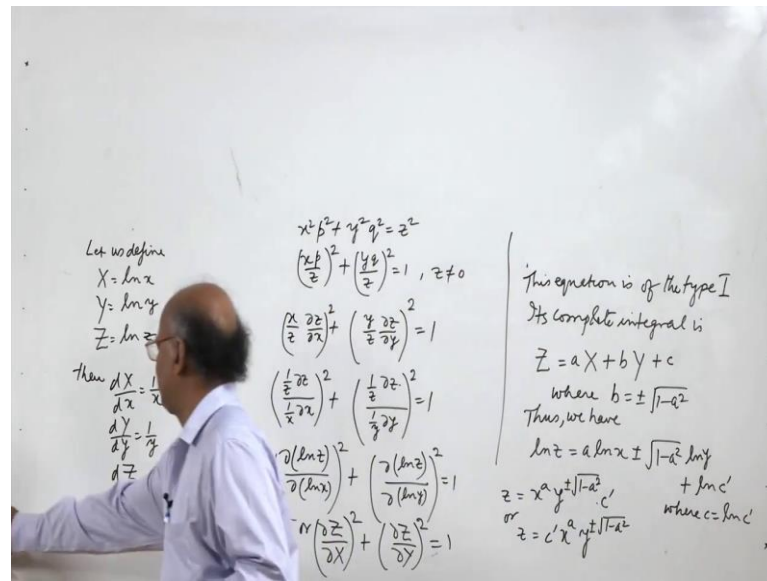 Let us define
X = ln x
Y = ln y
Z = ln z
Then dX/dx = 1/x
dY/dy = 1/y
dZ
x²p² + y²q² = z²
(xp/z)² + (yq/z)² = 1, z≠0
(x/z ∂z/∂x)² + (y/z ∂z/∂y)² = 1
(1/z ∂z / 1/x ∂x)² + (1/z ∂z / 1/y ∂y)² = 1
(∂(ln z)/∂(ln x))² + (∂(ln z)/∂(ln y))² = 1
or (∂Z/∂X)² + (∂Z/∂Y)² = 1
This equation is of the type I
Its complete integral is
Z = aX + bY + c
where b = ±√(1-a²)
Thus, we have
ln z = a ln x ± √(1-a²) ln y
+ ln c'
where c = ln c'
z = x^a y^(±√(1-a²)) . c'
or
z = c' x^a y^(±√(1-a²))